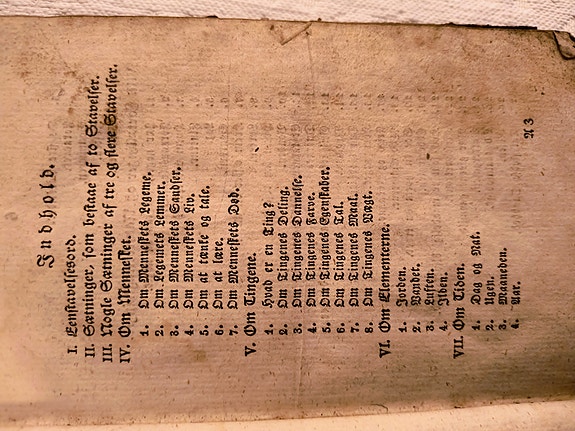 Indhold.
I. Eenstavelsesord.
II. Sætninger, som bestaae af to Stavelser.
III. Nogle Sætninger af tre og flere Stavelser.
IV. Om Mennesket.
1. Om Menneskets Legeme.
2. Om Legemets Lemmer.
3. Om Menneskets Sandser.
4. Om Menneskets Liv.
5. Om at tænke og tale.
6. Om at lære.
7. Om Menneskets Død.
V. Om Tingene.
1. Hvad er en Ting?
2. Om Tingenes Deling.
3. Om Tingenes Dannelse.
4. Om Tingenes Farve.
5. Om Tingenes Egenskaber.
6. Om Tingenes Tal.
7. Om Tingenes Maal.
8. Om Tingenes Vægt.
VI. Om Elementerne.
1. Jorden.
2. Vandet.
3. Luften.
4. Ilden.
VII. Om Tiden.
1. Dag og Nat.
2. Ugen.
3. Maaneden.
4. Aar.
A 3